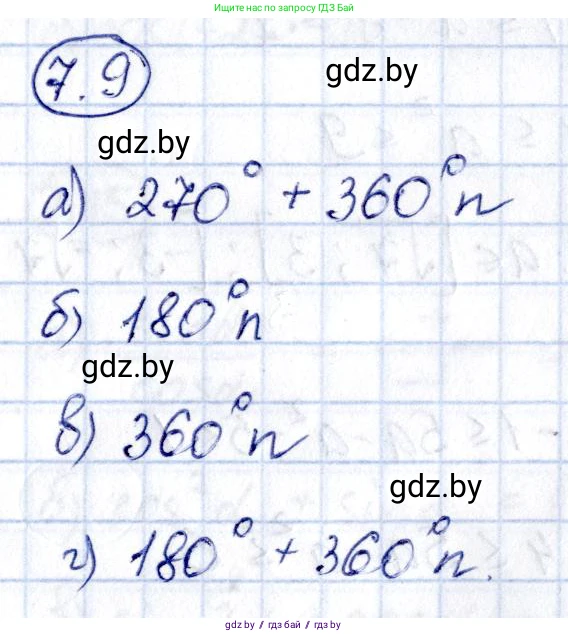 Ищите нас по запросу ГДЗ Бай
7.9
gdz.by
gdz.by
а) 270° + 360°n
б) 180°n
gdz.by
в) 360°n
gdz.by
г) 180° + 360°n.
gdz.by / гдз бай / gdz by